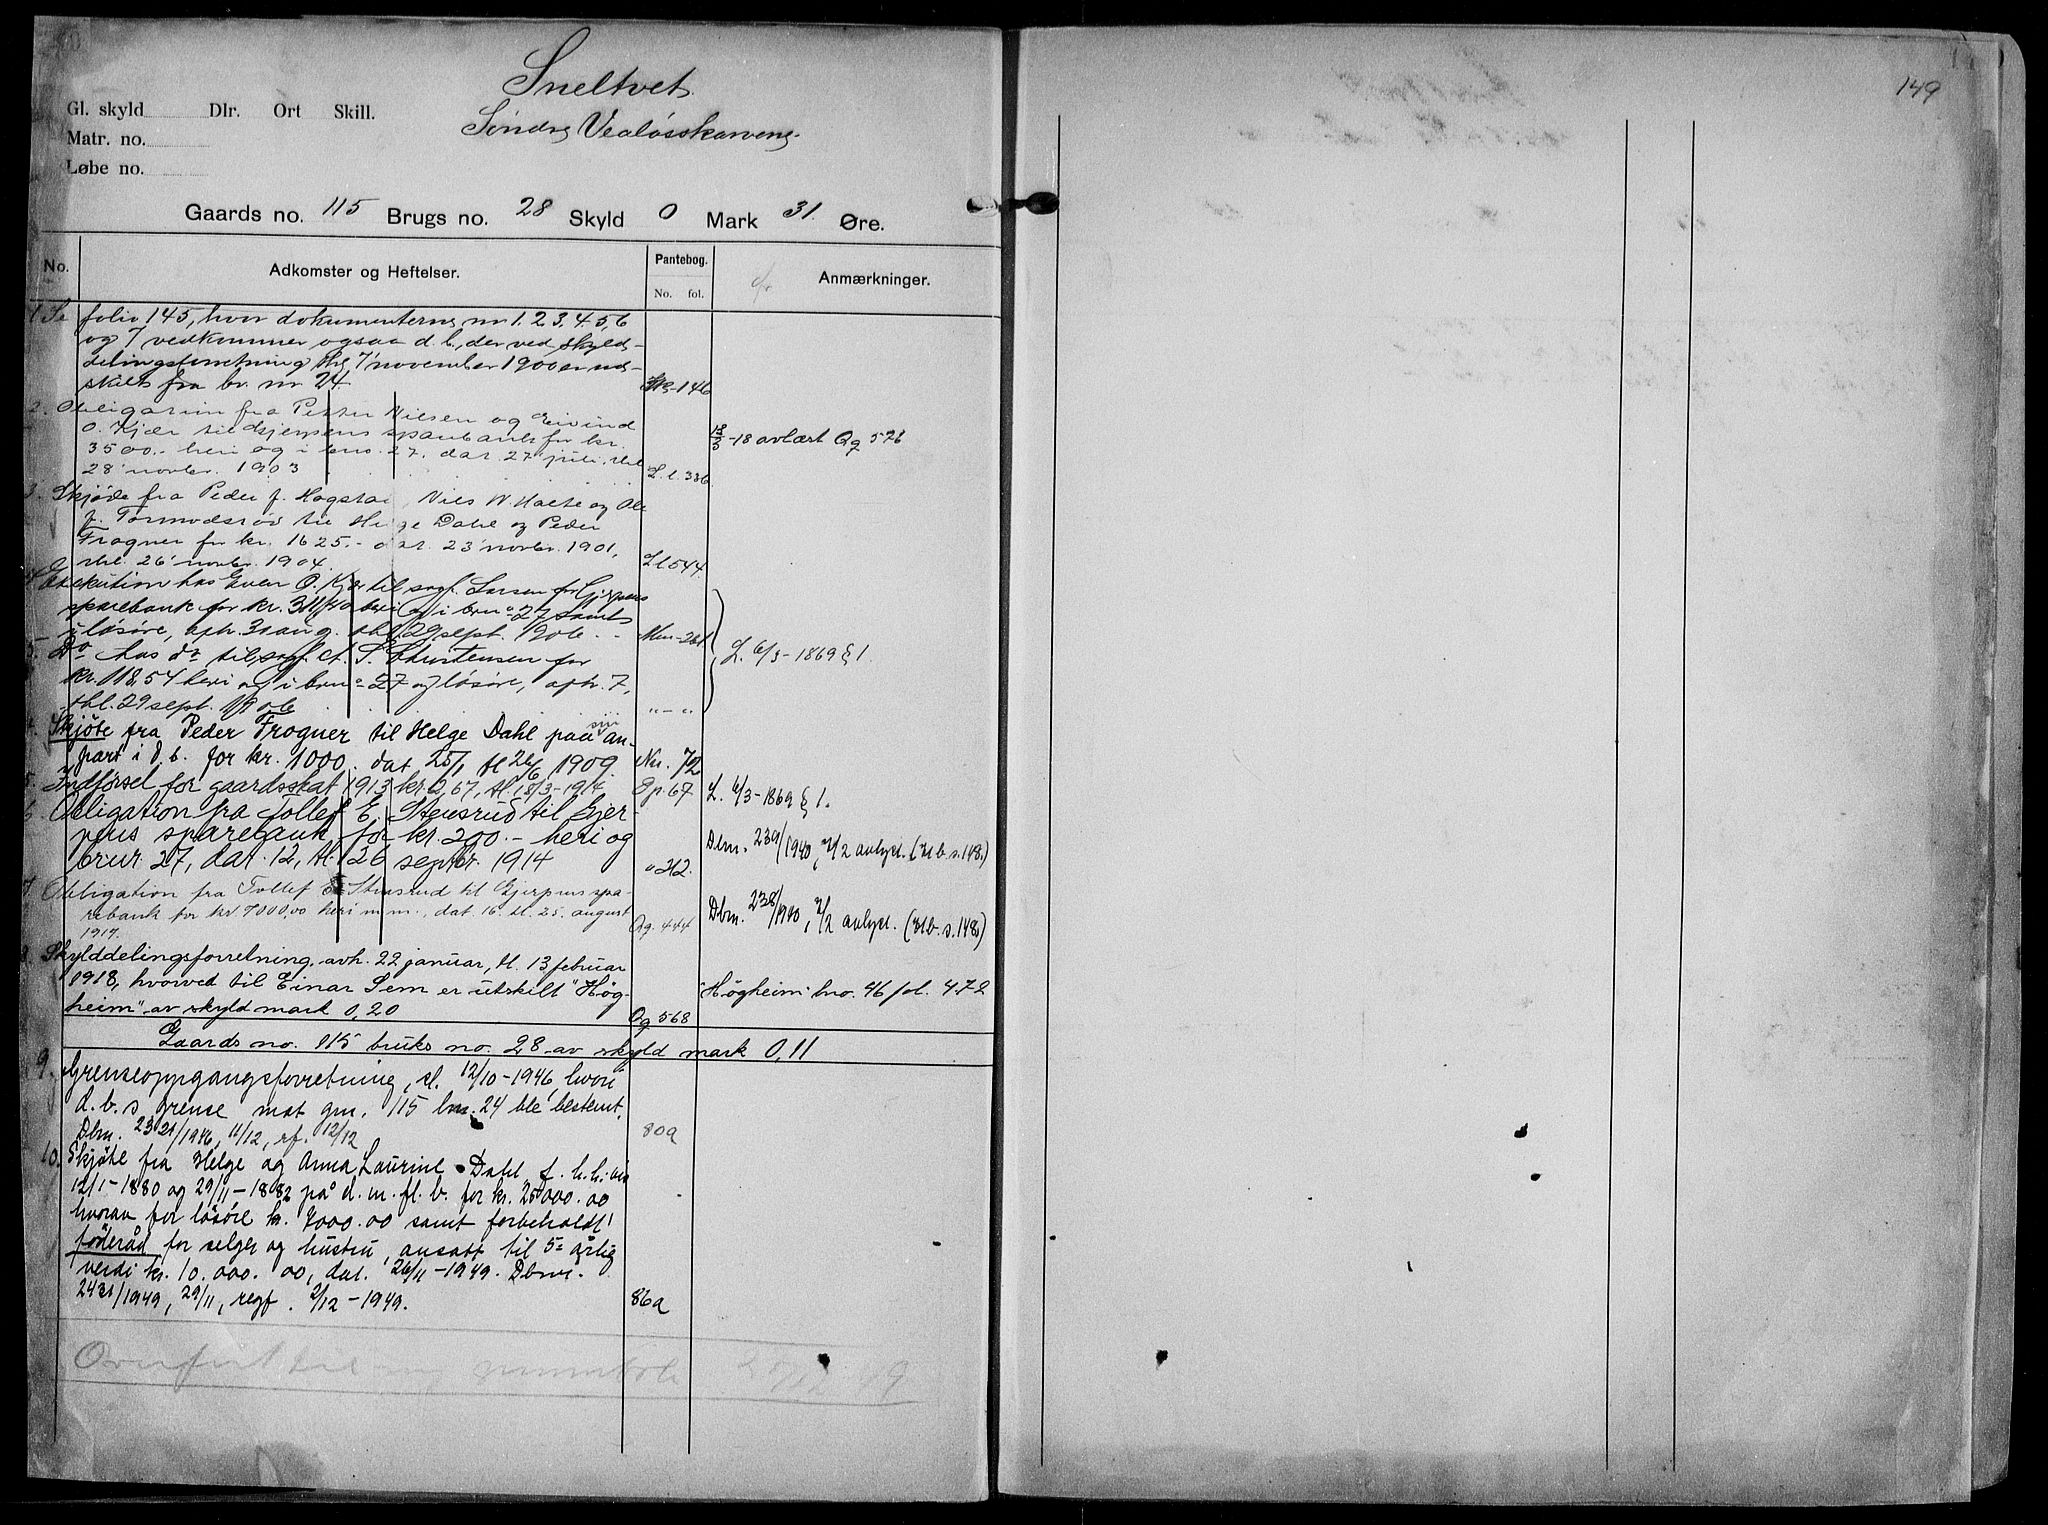 149
Sneltvet
Gl. skyld Dlr. Ort Skill.
Søndre Vealøsskarvene
Matr. no.
Løbe no.
Gaards no. 115 Brugs no. 28 Skyld 0 Mark 31 Øre.
No. Adkomster og Heftelser. Pantebog. No. fol. Anmærkninger.
1 Se folio 145, hvor dokumenterne nr 1. 2. 3. 4. 5. 6
og 7 vedkommer ogsaa d. b., der ved skyld-
delingsforretning thl. 7 november 1900 er ud-
skilt fra br. nr 24. 146
2. Obligation fra Petter Nielsen og Eivind
O. Kjær til Gjerpens sparebank for kr.
3500.- heri og i bno. 27, dat. 27 juli, thl.
28' novbr. 1903 L. l. 336 -18 avlæst Qg 576
3. Skjøde fra Peder J. Hogstad, Niels W. og Ole
J. Tormodsrød til Helge Dahl og Peder
Frogner for kr. 1625.- dat. 23' novbr. 1901,
thl. 26' novbr. 1904. Ll 544
4 Exekution hos Even O. Kjær til sagf. Larsen for Gjerpens
sparebank for kr. heri og i brn° 27 samt
i løsøre, aph. 31 aug. thl 29 sept. 1906. -
5. D° hos d° til sagf. Christensen for
kr. 118.54 heri og i brn° 27 og løsøre, aph. 7,
thl. 29 sept. 1906 " - " L. 6/3-1869 § 1.
4. Skjøte fra Peder Frogner til Helge Dahl paa sin an-
part i d. b. for kr. 1000. dat 25/1 tl 26/6 1909. Nn. 72
5. Indførsel for gaardsskat 1913 kr. 2,67, tl. 18/3-1914 Gp. 67 L. 6/3-1869 § 1.
6. Obligation fra Tollef E. Stensrud til Gjer-
pens sparebank for kr. 200.- heri og
brnr. 27, dat. 12, tl. 26 septbr. 1914 " 212. Dbnr. 239/1940, 7/2 avlyst. (Mb. s. 148.)
7. Obligation fra Tollef E. Stensrud til Gjerpens spa-
rebank for kr. 7000.00 heri m.m., dat. 16. tl. 25. august
1917. Qg. 444 Dbnr. 238/1940, 7/2 avlyst. (Mb. s. 148)
8. Skylddelingsforretning, avh. 22 januar, tl. 13 februar
1918, hvorved til Einar Sem er utskilt "Høg-
heim" av skyld mark 0,20 Qg 568 "Høgheim" bno. 46 fol. 472
Gaards no. 115 bruks no. 28 av skyld mark 0,11
9. Grenseoppgangsforretning, sl. 12/10-1946, hvori
d. b. s grense mot gnr. 115 bnr. 24 ble bestemt.
Dbnr. 2321/1946, 11/12, rf. 12/12 80a
10. Skjøte fra Helge og Anna Laurine Dahl, f. h. h. vis
12/1-1880 og 29/11-1882 på d. m. fl. b. for kr. 25000.00
hvorav for løsøre kr. 7000.00 samt forbeholdt
føderåd for selger og hustru, ansatt til 5-årlig
verdi kr. 10.000.00, dat. 26/11-1949. Dbnr.
2431/1949, 29/11, regf. 2/12-1949. 86a
Overført til ny grunnbok